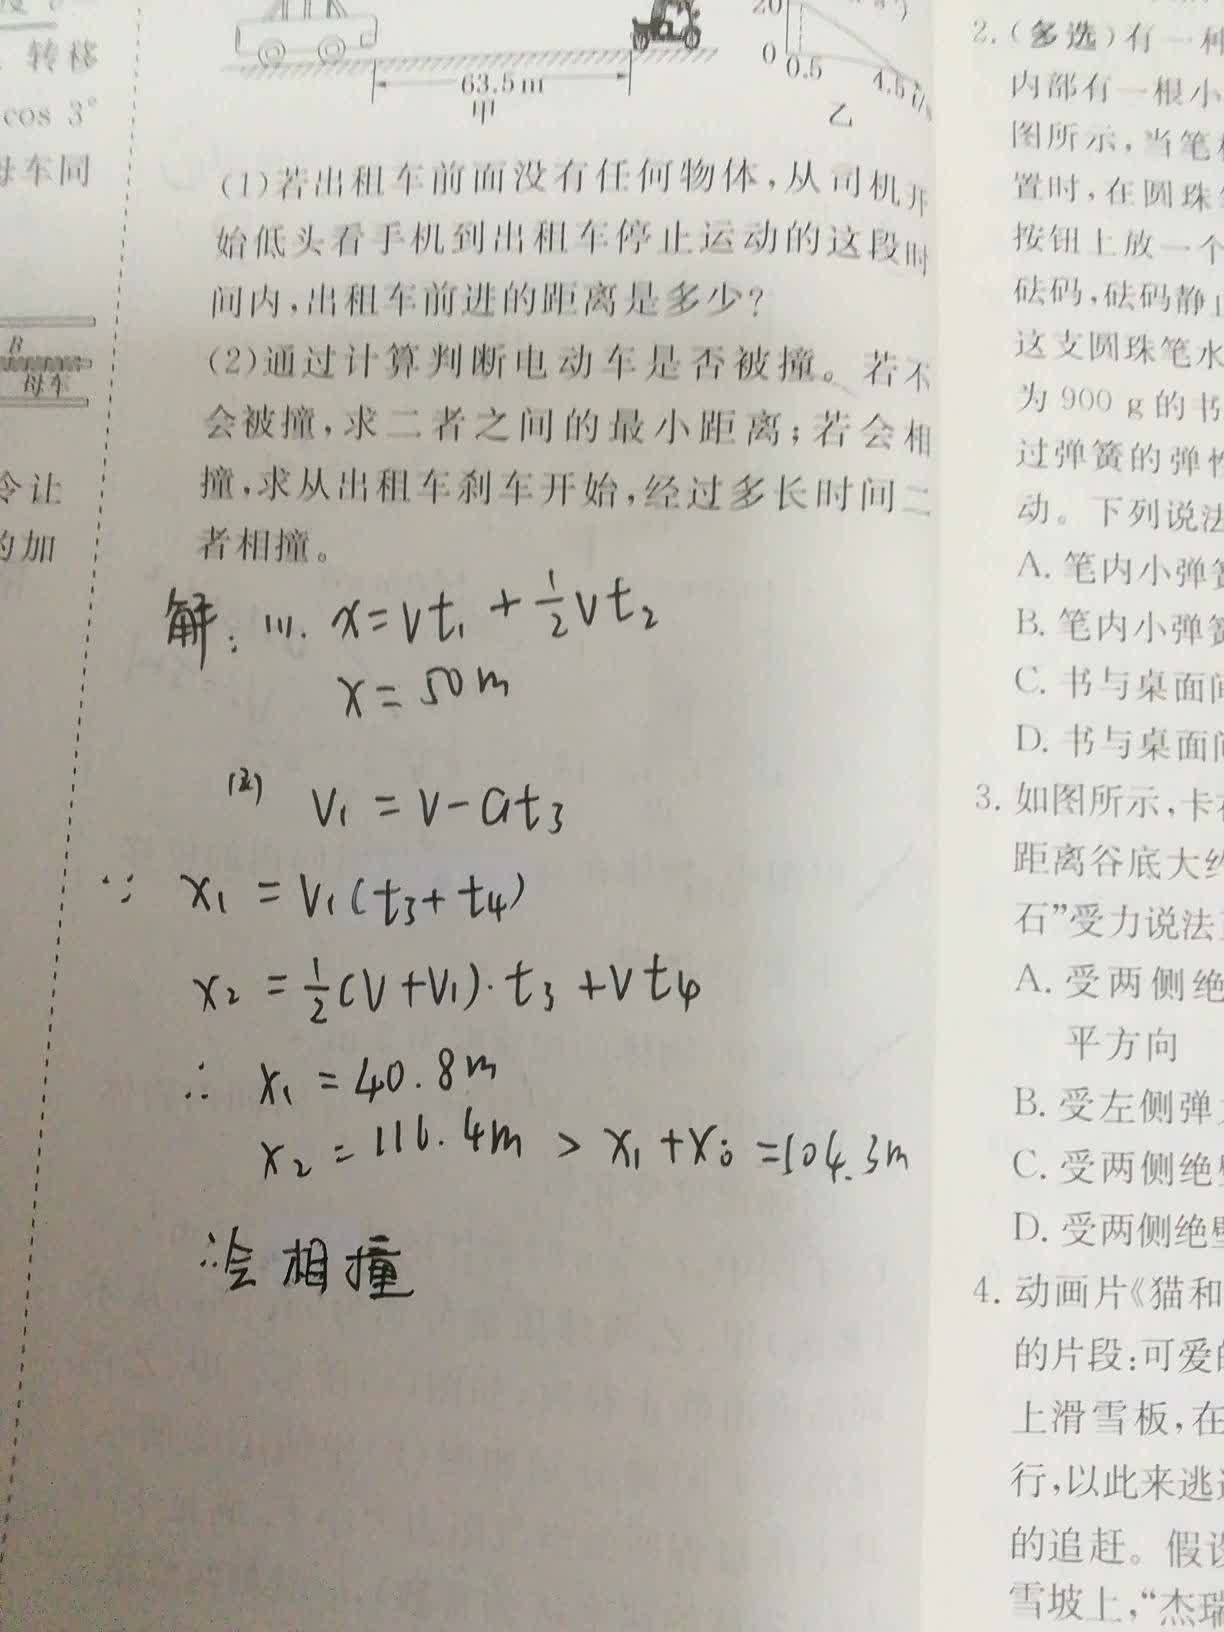 转移
cos 3°
母车同
B
母车
令让
的加
63.5 m
甲
20
0
0.5
4.5
乙
(1)若出租车前面没有任何物体,从司机开
始低头看手机到出租车停止运动的这段时
间内,出租车前进的距离是多少?
(2)通过计算判断电动车是否被撞。若不
会被撞,求二者之间的最小距离;若会相
撞,求从出租车刹车开始,经过多长时间二
者相撞。
解: (1). x=vt₁ + ½vt₂
x = 50 m
(2) v₁ = v-at₃
∵ x₁ = v₁(t₃+t₄)
x₂ = ½(v+v₁)·t₃ +vt₄
∴ x₁ = 40.8m
x₂ = 116.4m > x₁+x₀ =104.3m
∴会相撞
2. (多选)有一种
内部有一根小
图所示,当笔
置时,在圆珠
按钮上放一个
砝码,砝码静
这支圆珠笔水
为 900 g 的书
过弹簧的弹
动。下列说法
A. 笔内小弹簧
B. 笔内小弹簧
C. 书与桌面间
D. 书与桌面间
3. 如图所示,卡在
距离谷底大约
石”受力说法
A. 受两侧绝
平方向
B. 受左侧弹
C. 受两侧绝壁
D. 受两侧绝壁
4. 动画片《猫和
的片段:可爱的
上滑雪板,在
行,以此来逃
的追赶。假设
雪坡上,“杰瑞